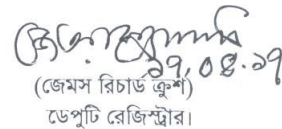 ১৭.০৪.১৭
(জেমস রিচার্ড ক্রুশ)
ডেপুটি রেজিস্ট্রার।